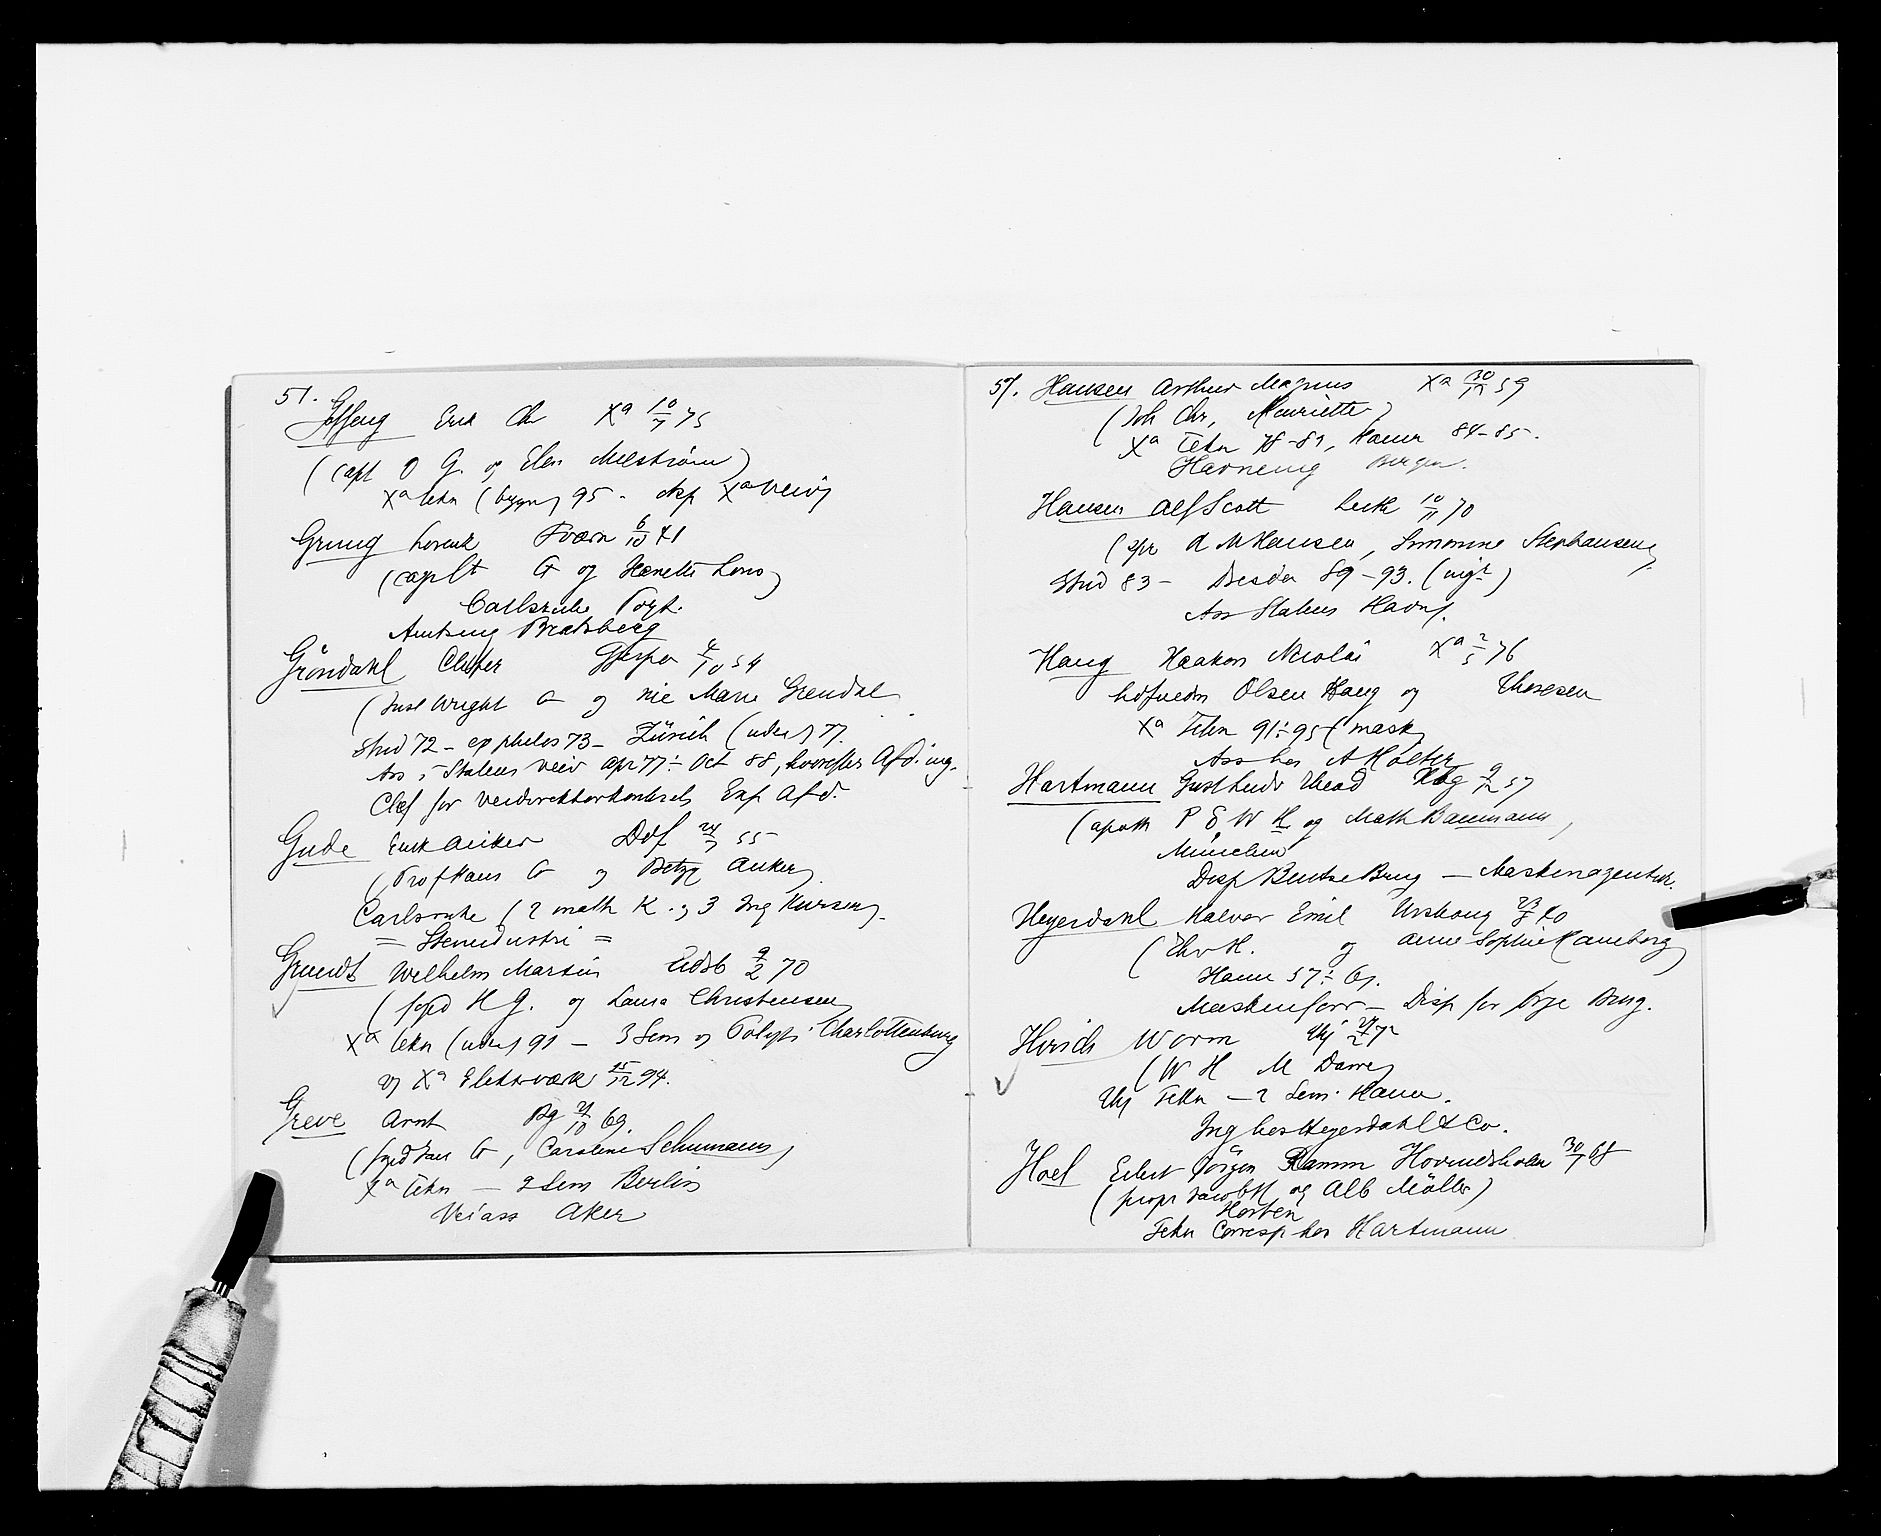 51.
Erik Chr Xa 10/7 75
(capt O G. og Elen Melström)
Xa tekn (bygn) 95 - Xa veiv
Grung Lorentz 6/10 41
(capt G og Henrette Lous)
Carlsruhe
Amtsing Bratsberg
Gröndahl Chster Gjerpen 4/10 54
(Just Wright G og nie Marie Grendal
stud 72 - ex philos 73 - Zürich 77.
Ass i Statens veiv apr 77 ÷ Oct 88, hvorefter Afd. ing.
Chef for Veidirektørkontorets Exp Afd.
Gude Erik Anker Ddf 24/7 55
(Prof Hans G og Betzy Anker)
Carlsruhe (2 math K. og 3 Ing Kurser).
= Stenindustri =
Grundt Wilhelm Martin Eidsb 9/2 70
(foged H G. og Laura Christensen)
Xa tekn 91 - 3 Sem og Polyt i Charlottenburg
og Xa Elektrværk 15/12 94.
Greve Arnt Bg 21/10 69.
(foged Jan G, Caroline Schumann)
Xa Tekn - 2 Sem Berlin
Veiass Aker
51. Hansen Arthur Magnus Xa 30/12 59
(Joh Chr, Henriette)
Xa Tekn 78-81, Hann 84-85.
Havneing Bergen.
Hansen Alf Scott 10/11 70
A M Hansen, Simonine Stephansen)
Stud 83 - Dresden 89-93. (ingr)
Ass Statens Havnv.
Haug Haakon Nicolai Xa 2/5 76
Olsen Haug og Thoresen
Xa Tekn 91÷95 (mask)
Ass hos A Holter
Hartmann Gust Ludv Thead Kbg 9/2 57
(apoth P E W H. og Math Baumann)
München
Disp Bentse Brug - Maskinagentur.
Heyerdahl Halvor Emil Urskoug 23/8 40
(Thv H. og Anne Sophie Hameborg)
Hann 57÷61.
Maskinforr - Disp for Brug.
Hirsch Worm Thj 27/2 72
(W H M Damm)
Thj Tekn - 2 Sem. Hann.
Ing hos Heyerdahl & Co.
Hoel Eilert Jörgen Ramm Hovindsholm 30/7 68
(propr Jacob H og Alb Möller)
Horten
Tekn Corresp. hos Hartmann